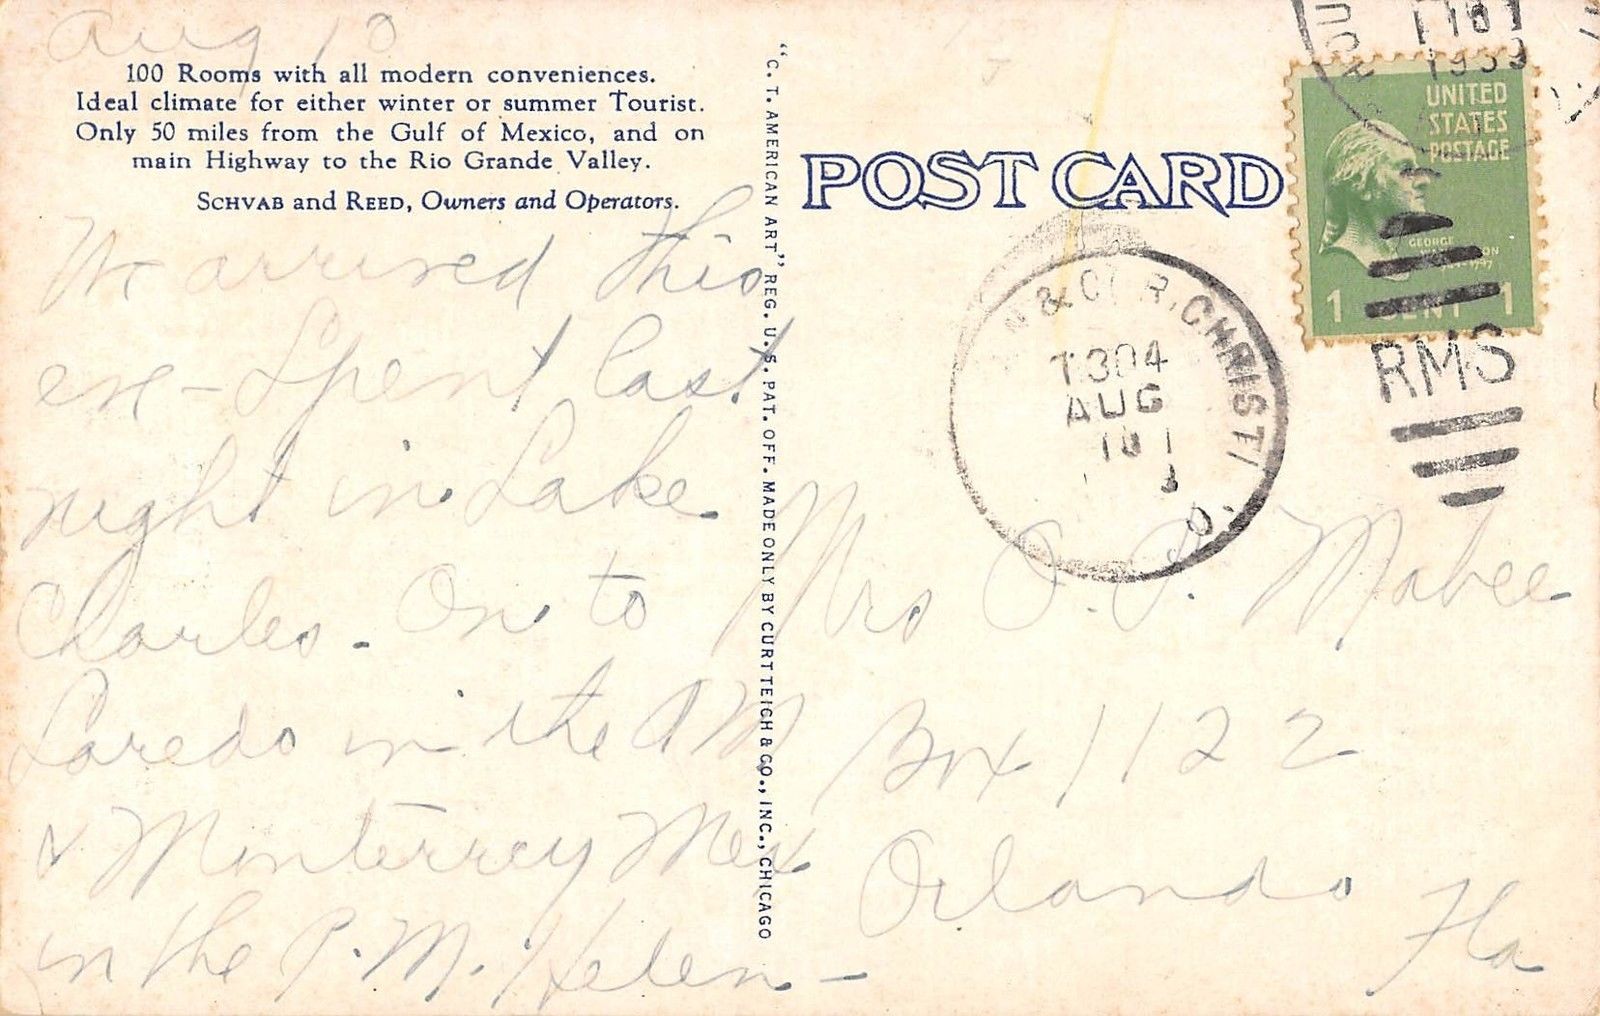 Aug 10
100 Rooms with all modern conveniences.
Ideal climate for either winter or summer Tourist.
Only 50 miles from the Gulf of Mexico, and on
main Highway to the Rio Grande Valley.
SCHVAB and REED, Owners and Operators.
We arrived this
eve - Spent last
night in Lake
Charles. On to
Laredo in the AM
& Monterrey Mex
in the P.M. Helen -
"C. T. AMERICAN ART" REG. U. S. PAT. OFF. MADE ONLY BY CURT TEICH & CO., INC., CHICAGO
POST CARD
UNITED
STATES
POSTAGE
GEORGE
1 CENT 1
1939
R.CHRISTI
T304
AUG
RMS
Mrs O. P. Mabee
Box 1122
Orlando
Fla